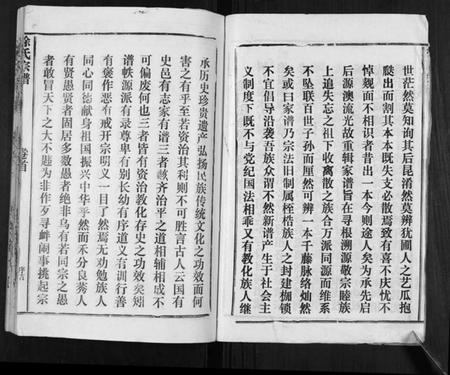 世茫然莫知询其后昆淆然莫辨犹圃人之艺瓜抱
而割其本本既失支必散焉致有喜不庆忧不
悼觌面不相识者昔出一本今则途人矣为承先启
后源澳流光故重辑家谱旨在寻根溯源敬宗睦族
上追失忘之祖下收离散之族合万派同源而维系
不坠联百世子孙而厘然可辨一本千藤脉络灿然
矣或曰家谱乃宗法旧制属桎梏族人之封建枷锁
不宜倡导沿袭吾族众谓不然新谱产生于社会主
义制度下既不与党纪国法相乖又有教化族人继
承历史珍贵遗产弘扬民族传统文化之功效而何
害之有乎至若资治其利则不可胜言古人云国有
史邑有志家有谱三者齐治平之道相辅相成不
可偏废何也三者皆有资治教化存史之功效矣矧
谱帙源派有录尊卑有别长幼有序道义有训行善
有褒作恶有戒开宗明义一目了然焉无劝勉族人
同心同德献身祖国振兴中华乎然而禾分良莠人
有贤愚贤者固居多数愚者绝非乌有若同宗之愚
者敢冒天下之大不韪为非作歹寻衅闹事挑起宗
徐氏宗谱
卷首